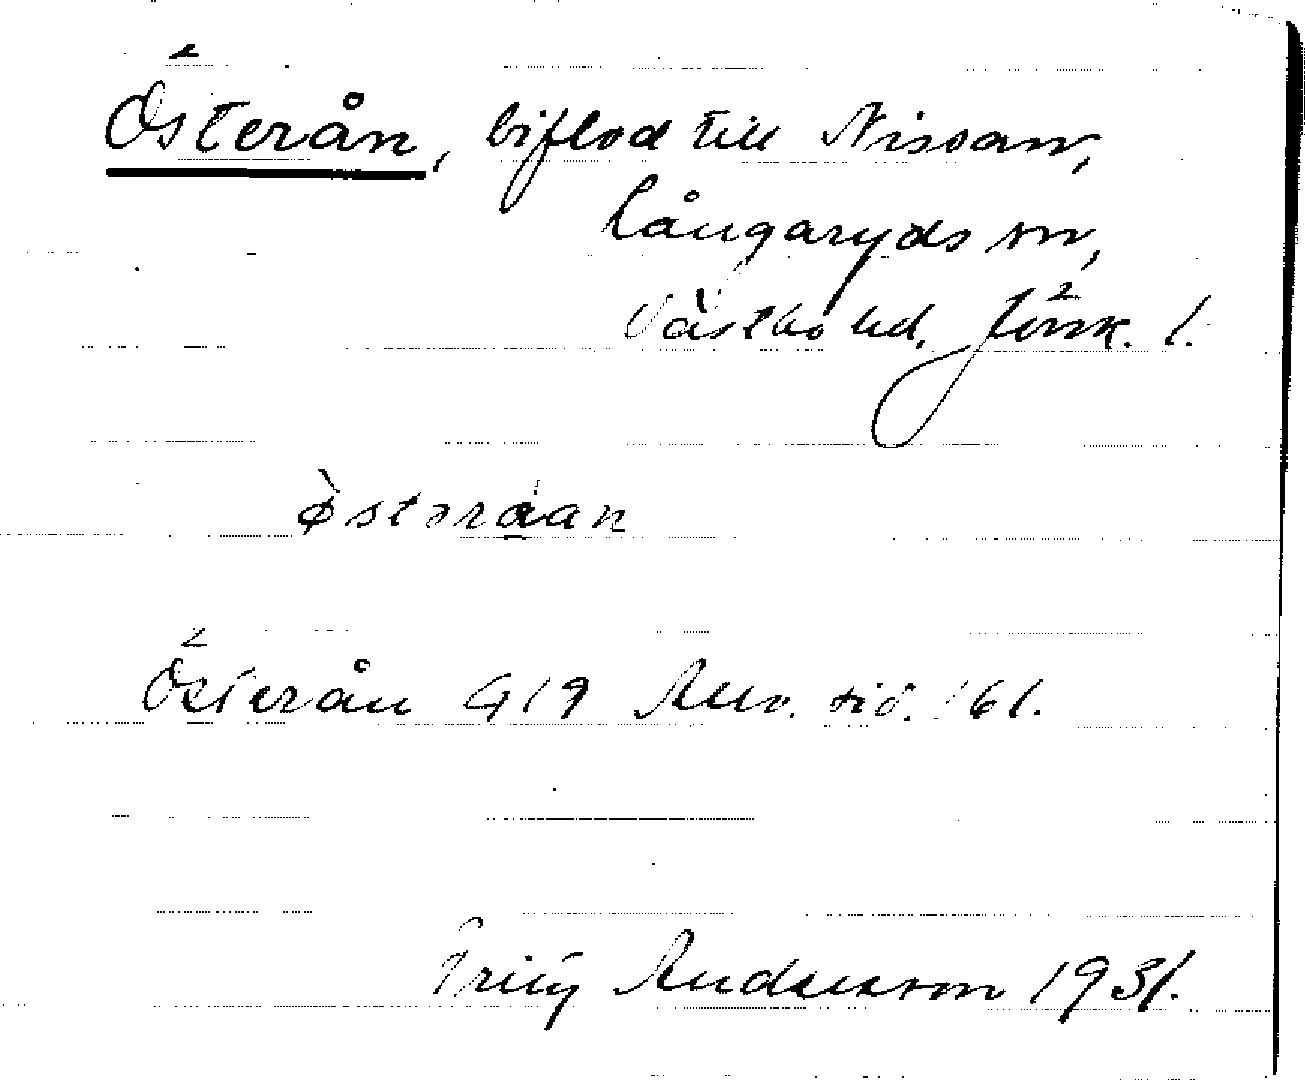 Österån, biflod till Nissan,
Långaryds sn,
Västbo hd, Jönk. l.
Österån G19 Anv. sjö. 161.
Fritz Andersson 1931.